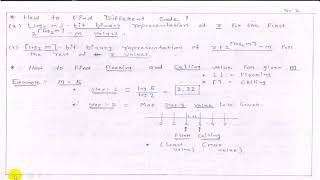 * How to Find Different Code?
(1) ⌊log₂ m⌋ - bit binary representation of r for the first
2^⌈log₂ m⌉ - m values.
(2) ⌈log₂ m⌉ - bit binary representation of r + 2^⌈log₂ m⌉ - m for
the rest of values.
* How to find flooring and ceiling value for given m
• ⌊ ⌋ = flooring
• ⌈ ⌉ = ceiling
Example : M = 5
• Step:-1 = log 5 / log 2 = 2.32
• Step:-2 = Map step-1 value into Graph.
Floor Ceiling
(Least value) (max value)